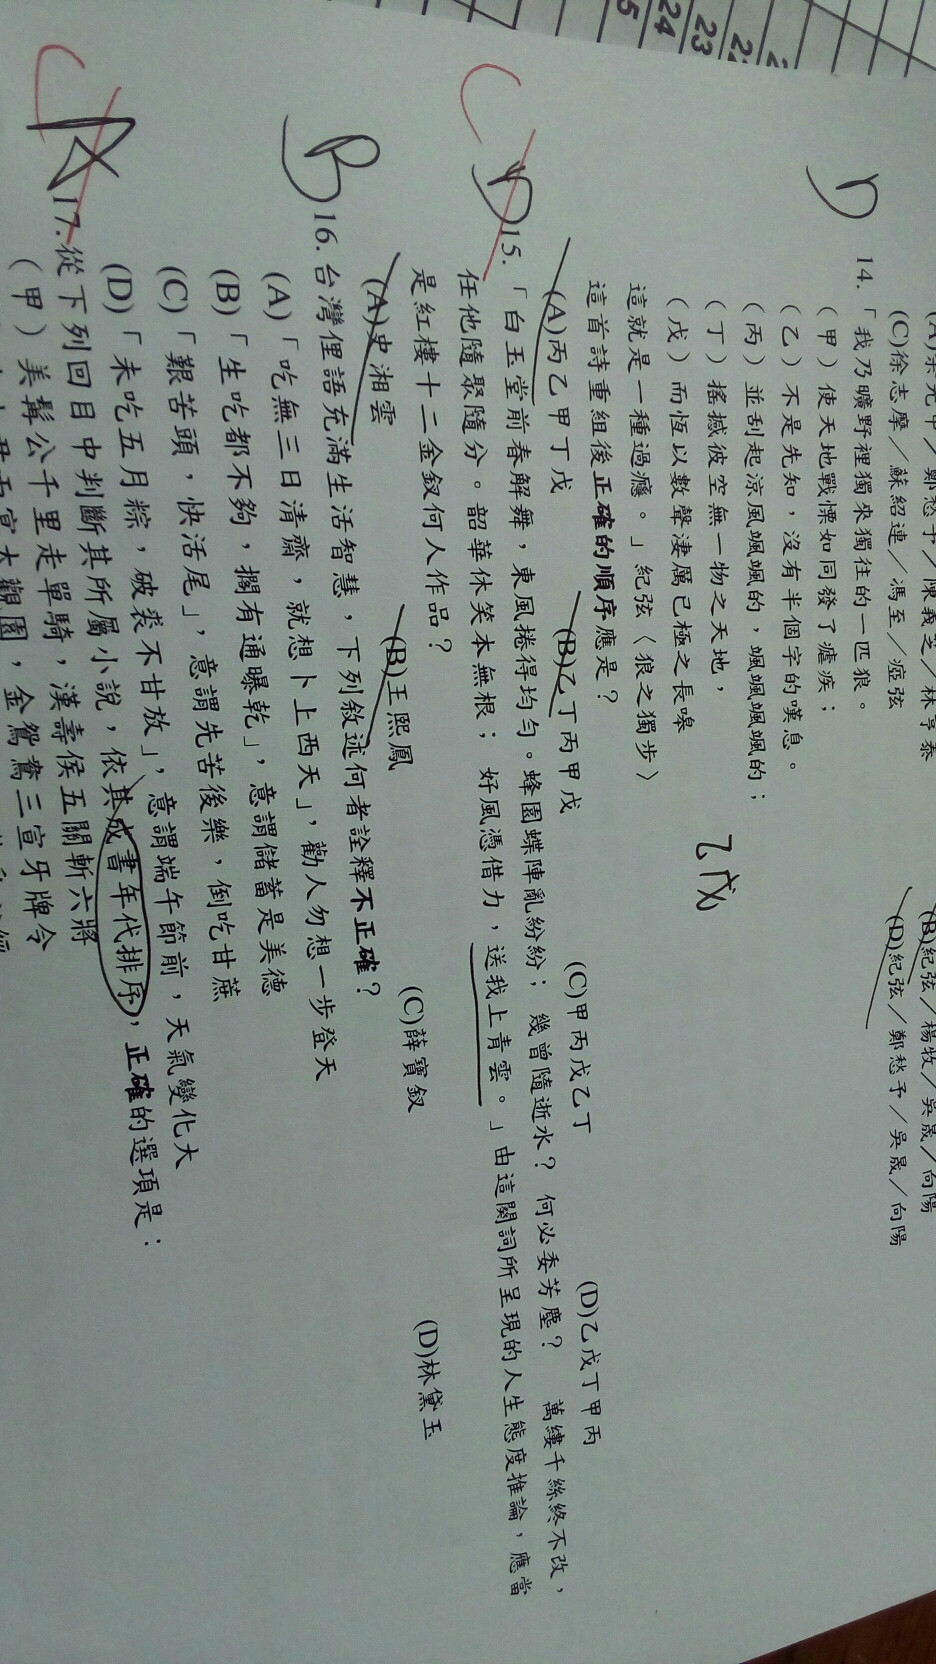 22
23
24
25
(C)徐志摩／蘇紹連／馮至／瘂弦
(B)紀弦／楊牧／吳晟／向陽
(D)紀弦／鄭愁予／吳晟／向陽
D
14.「我乃曠野裡獨來獨往的一匹狼。
(甲)使天地戰慄如同發了瘧疾；
(乙)不是先知，沒有半個字的嘆息。
(丙)並刮起涼風颯颯的，颯颯颯颯的；
(丁)搖撼彼空無一物之天地，
(戊)而恆以數聲淒厲已極之長嗥
乙戊
這就是一種過癮。」紀弦〈狼之獨步〉
這首詩重組後正確的順序應是？
(A)丙乙甲丁戊 (B)乙丁丙甲戊 (C)甲丙戊乙丁 (D)乙戊丁甲丙
C D
15.「白玉堂前春解舞，東風捲得均勻。蜂園蝶陣亂紛紛；幾曾隨逝水？何必委芳塵？ 萬縷千絲終不改，
任他隨聚隨分。韶華休笑本無根；好風憑借力，送我上青雲。」由這闋詞所呈現的人生態度推論，應當
是紅樓十二金釵何人作品？
(A)史湘雲 (B)王熙鳳 (C)薛寶釵 (D)林黛玉
B
16.台灣俚語充滿生活智慧，下列敘述何者詮釋不正確？
(A)「吃無三日清齋，就想卜上西天」，勸人勿想一步登天
(B)「生吃都不夠，擱有通曝乾」，意謂儲蓄是美德
(C)「艱苦頭，快活尾」，意謂先苦後樂，倒吃甘蔗
(D)「未吃五月粽，破裘不甘放」，意謂端午節前，天氣變化大
17.從下列回目中判斷其所屬小說，依其成書年代排序，正確的選項是：
(甲)美髯公千里走單騎，漢壽侯五關斬六將
大觀園，金鴛鴦三宣牙牌令